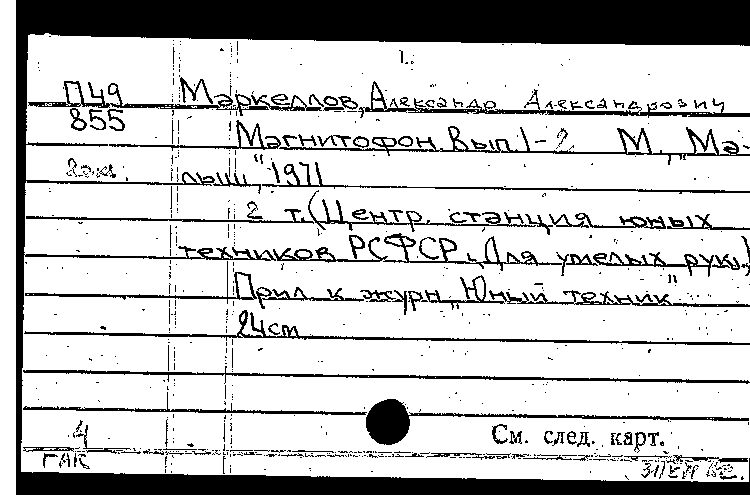 1.
П49 Маркеллов, Александр Александрович
855 Магнитофон. Вып. 1-2 М., „Ма-
2экз. лыш", 1971
2 т. (Центр. станция юных
техников РСФСР. „Для умелых рук".)
Прил. к журн. „Юный техник"
24см
4 См. след. карт.
ГАК